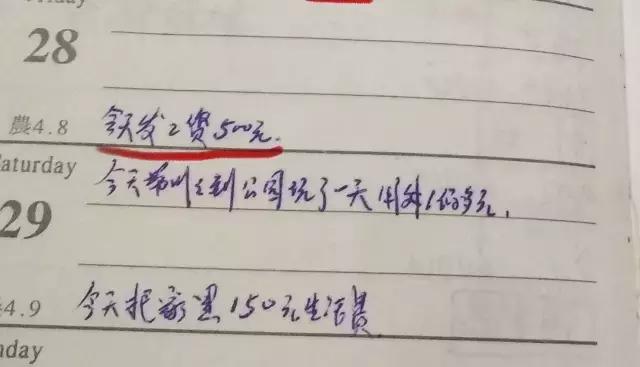 Friday
28
農4.8 今天发工资500元.
Saturday
今天 到公园玩了一天用
29
4.9 今天把家里150元生活费
nday